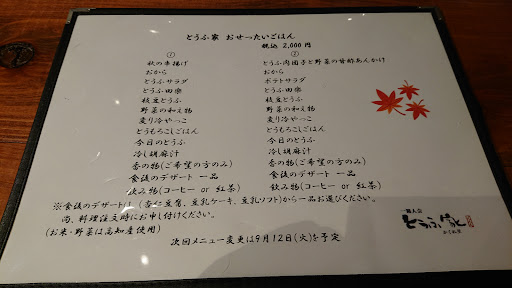 とうふ家 おせったいごはん
税込 2,000円
① ②
秋の串揚げ とうふ肉団子と野菜の甘酢あんかけ
おから おから
とうふサラダ ポテトサラダ
とうふ田楽 とうふ田楽
枝豆とうふ 枝豆とうふ
野菜の和え物 野菜の和え物
変り冷やっこ 変り冷やっこ
とうもろこしごはん とうもろこしごはん
今日のとうふ 今日のとうふ
冷し胡麻汁 冷し胡麻汁
香の物(ご希望の方のみ) 香の物(ご希望の方のみ)
食後のデザート 一品 食後のデザート 一品
飲み物(コーヒー or 紅茶) 飲み物(コーヒー or 紅茶)
※食後のデザートは、(杏仁豆腐、豆乳ケーキ、豆乳ソフト)から一品お選びください。
尚、料理注文時にお申し付けください。
(お米・野菜は高知産使用)
次回メニュー変更は9月12日(火)を予定
とうふ家